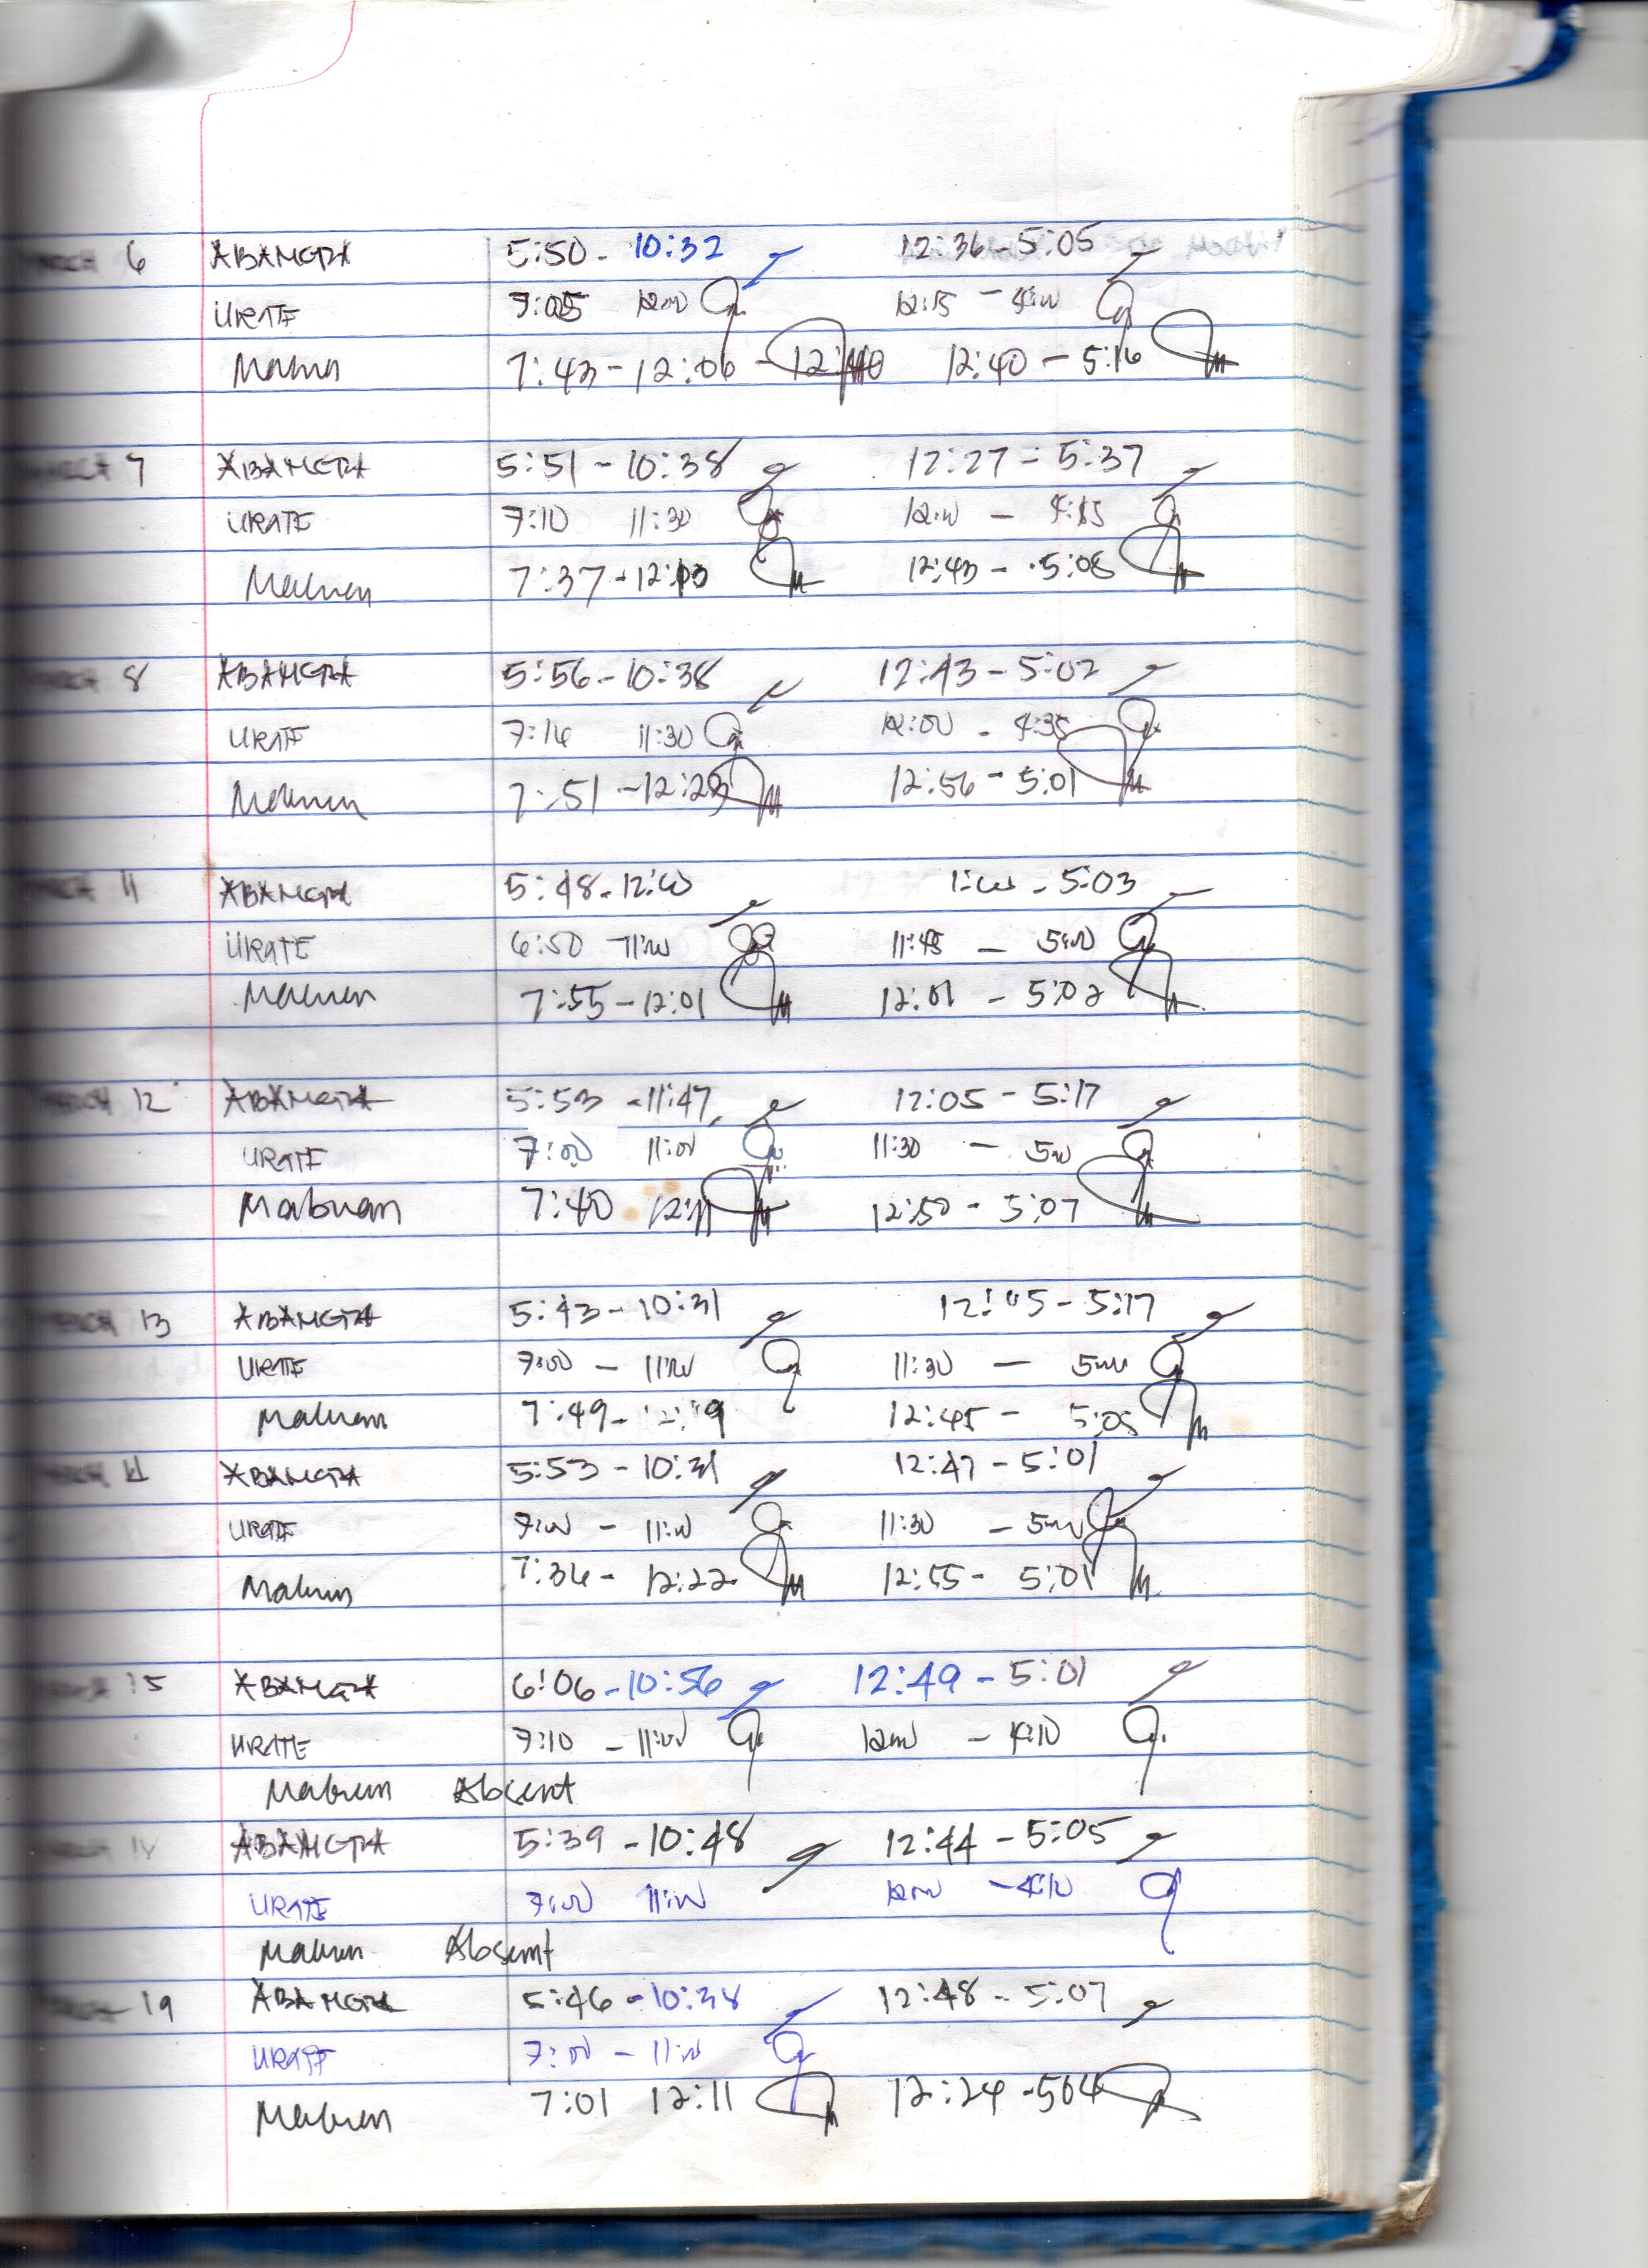 MARCH 6 ABAMGTA 5:50 - 10:32 12:36 - 5:05
URATE 7:05 12:00 12:15 - 4:00
7:43 - 12:06 - 12:40 12:40 - 5:16
MARCH 7 ABAMGTA 5:51 - 10:38 12:27 - 5:37
URATE 7:10 11:30 12:00 - 4:15
Mabuan 7:37 - 12:13 12:43 - 5:08
MARCH 8 ABAMGTA 5:56 - 10:38 12:43 - 5:02
URATE 7:16 11:30 12:00 - 4:35
Mabuan 7:51 - 12:23 12:56 - 5:01
MARCH 11 ABAMGTA 5:48 - 12:00 1:00 - 5:03
URATE 6:50 - 11:00 11:45 - 5:00
Mabuan 7:55 - 12:01 12:01 - 5:02
MARCH 12 ABAMGTA 5:53 - 11:47 12:05 - 5:17
URATE 7:00 11:00 11:30 - 5:00
Mabuan 7:40 12:11 12:50 - 5:07
MARCH 13 ABAMGTA 5:43 - 10:31 - 5:17
URATE 7:00 - 11:00 11:30 - 5:00
Mabuan 7:49 - 12:45 - 5:05
MARCH ABAMGTA 5:53 - 10:31 12:47 - 5:01
URATE 7:00 - 11:00 11:30 - 5:00
Mabuan 7:36 - 12:22 12:55 - 5:01
MARCH 15 ABAMGTA 6:06 - 10:56 12:49 - 5:01
URATE 7:10 - 11:00 12:00 - 4:10
Mabuan Absent
MARCH ABAMGTA 5:39 - 10:48 12:44 - 5:05
URATE 7:00 11:00 12:00 - 4:10
Mabuan Absent
MARCH 19 ABAMGTA 5:46 - 10:38 12:48 - 5:07
URATE 7:00 - 11:00
Mabuan 7:01 12:11 12:24 - 504